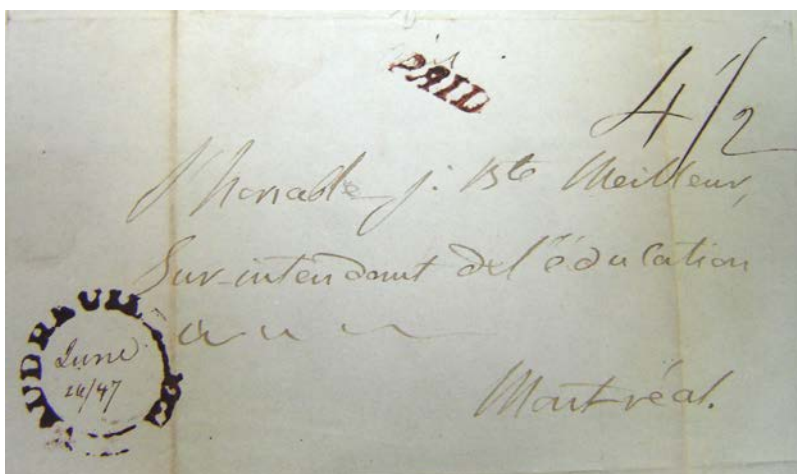 PAID
4 1/2
l'honable j. Bte Meilleur,
Sur-intendant de l'éducation
Montréal.
AUDREUIL
June
26/47